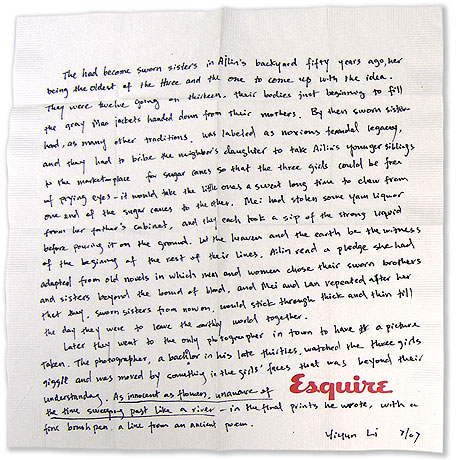 The had become sworn sisters in Ailin's backyard fifty years ago, her
being the oldest of the three and the one to come up with the idea.
They were twelve going on thirteen, their bodies just beginning to fill
the gray Mao jackets handed down from their mothers. By then sworn sister-
hood, as many other traditions, was labeled as noxious feaudal legacy,
and they had to bribe the neighbor's daughter to take Ailin's younger siblings
to the marketplace for sugar canes so that the three girls could be free
of prying eyes—it would take the little ones a sweet long time to chew from
one end of the sugar canes to the other. Mei had stolen some yam liquor
from her father's cabinet, and they each took a sip of the strong liquid
before pouring it on the ground. Let the heaven and the earth be the witness
of the begining of the rest of their lives, Ailin read a pledge she had
adapted from old novels in which men and women chose their sworn brothers
and sisters beyond the bond of blood, and Mei and Lan repeated after her
that they, sworn sisters from now on, would stick through thick and thin till
the day they were to leave the earthly world together.
Later they went to the only photographer in town to have a picture
taken. The photographer, a bachelor in his late thirties, watched the three girls
giggle and was moved by something in the girls' faces that was beyond their
understanding. As innocent as flowers, unaware of
the time sweeping past like a river — in the final prints he wrote, with a
fine brushpen, a line from an ancient poem.
Esquire
Yiyun Li 7/07